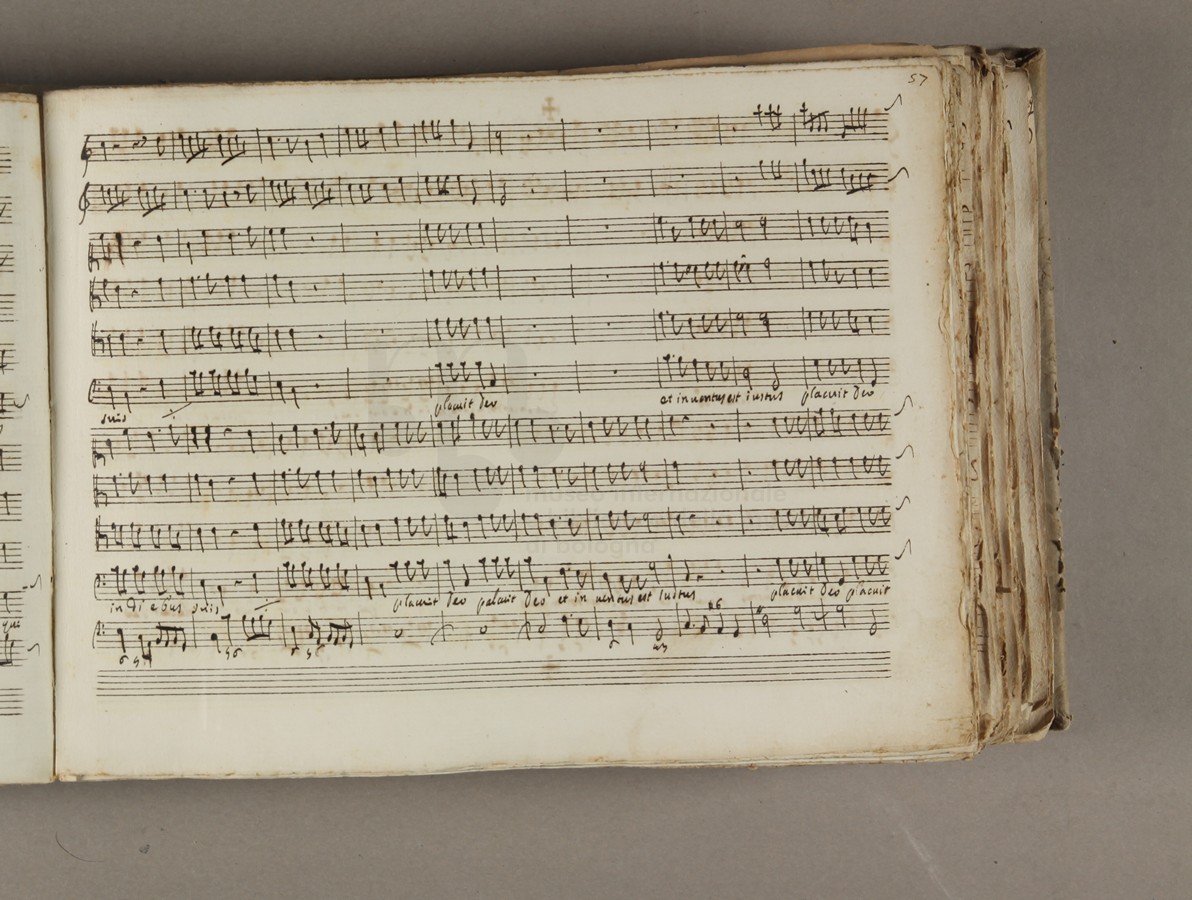 57
suis
placuit deo
et inventus est iustus placuit deo
in di e bus suis
placuit deo palcuit deo et in ventus est iustus placuit deo placuit
museo internazionale
di bologna
qui